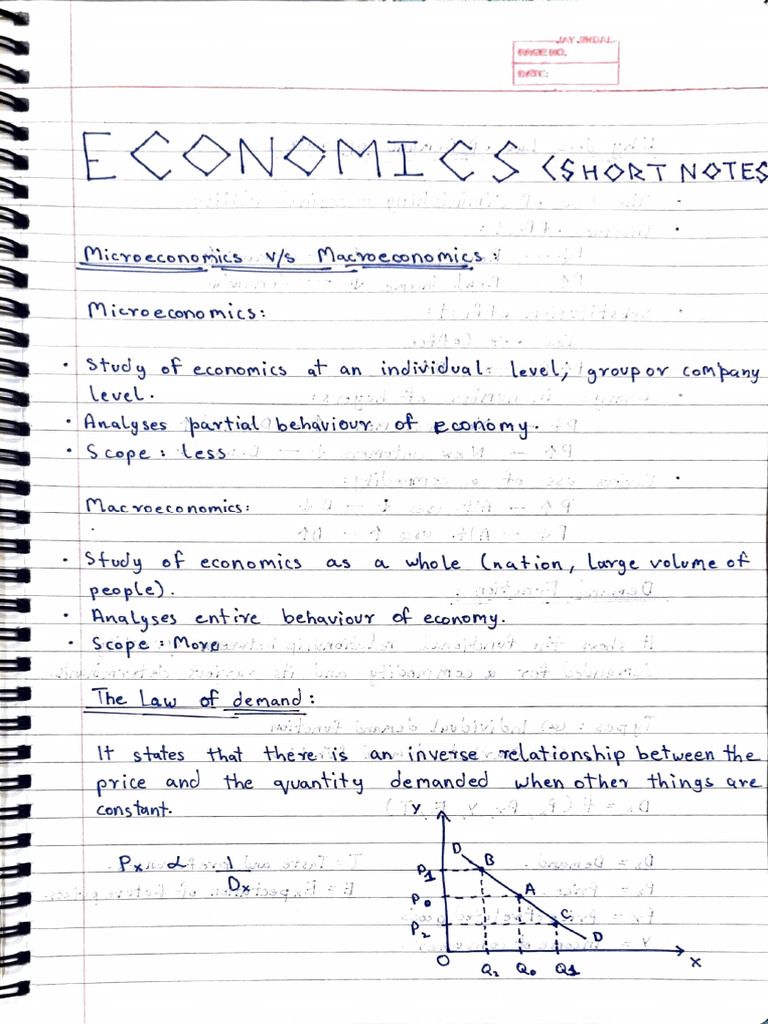 JAY SHDAL
PAGE NO.
DATE:
ECONOMICS (SHORT NOTES
Microeconomics v/s Macroeconomics :
Microeconomics:
• Study of economics at an individual level, group or company
level.
• Analyses partial behaviour of economy.
• Scope : Less
Macroeconomics:
• Study of economics as a whole (nation, Large volume of
people).
• Analyses entire behaviour of economy.
• Scope : More
The Law of demand :
It states that there is an inverse relationship between the
price and the quantity demanded when other things are
constant.
Px ∝ 1/Dx
Y
D
B
P1
A
P0
C
P2
D
O
Q2 Q0 Q1
X